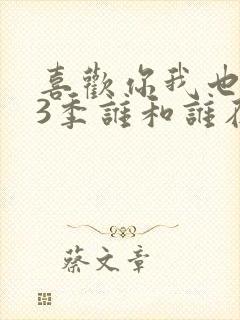 喜歡你我也
3季誰和誰在
蔡文章